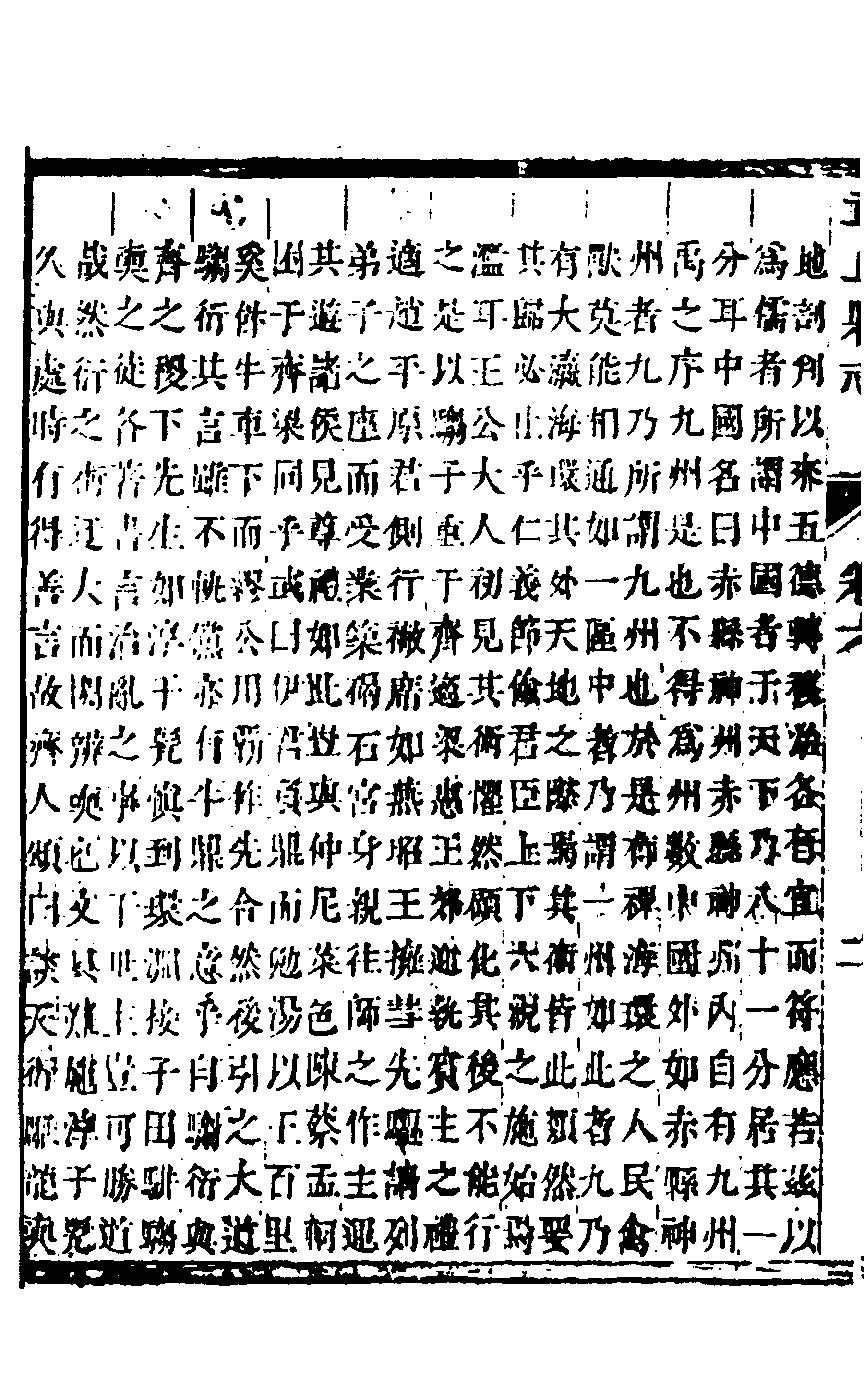 地剖判以來五德轉移治各有宜而符應若茲以
爲儒者所謂中國者于天下乃八十一分居其一
分耳中國名曰赤縣神州赤縣神州內自有九州
禹之序九州是也不得爲州數中國外如赤縣神
州者九乃所謂九州也於是有裨海環之人民禽
獸莫能相通如一區中者乃謂一州如此者九乃
有大瀛海環其外天地之際焉其術皆此類然要
其歸必止乎仁義節儉君臣上下六親之施始焉
濫耳王公大人初見其術懼然顧化其後不能行
之是以騶子重于齊適梁惠王郊迎執賓主之禮
適趙平原君側行襒席如燕昭王擁彗先驅請列
弟子之座而受業築碣石宮身親往師之作主運
其遊諸侯見尊禮如此豈與仲尼菜色陳蔡孟軻
困于齊梁同乎或曰伊尹負鼎而勉湯以王百里
奚飯牛車下而繆公用霸作先合然後引之大道
騶衍其言雖不軌儻亦有牛鼎之意乎自騶衍與
齊之稷下先生如淳于髡愼到環淵接子田駢騶
奭之徒各著書言治亂之事以干世主豈可勝道
哉然衍之術迂大而閎辯奭也文具難施淳于髡
久與處時有得善言故齊人頌曰談天衍雕龍奭
卷六
二